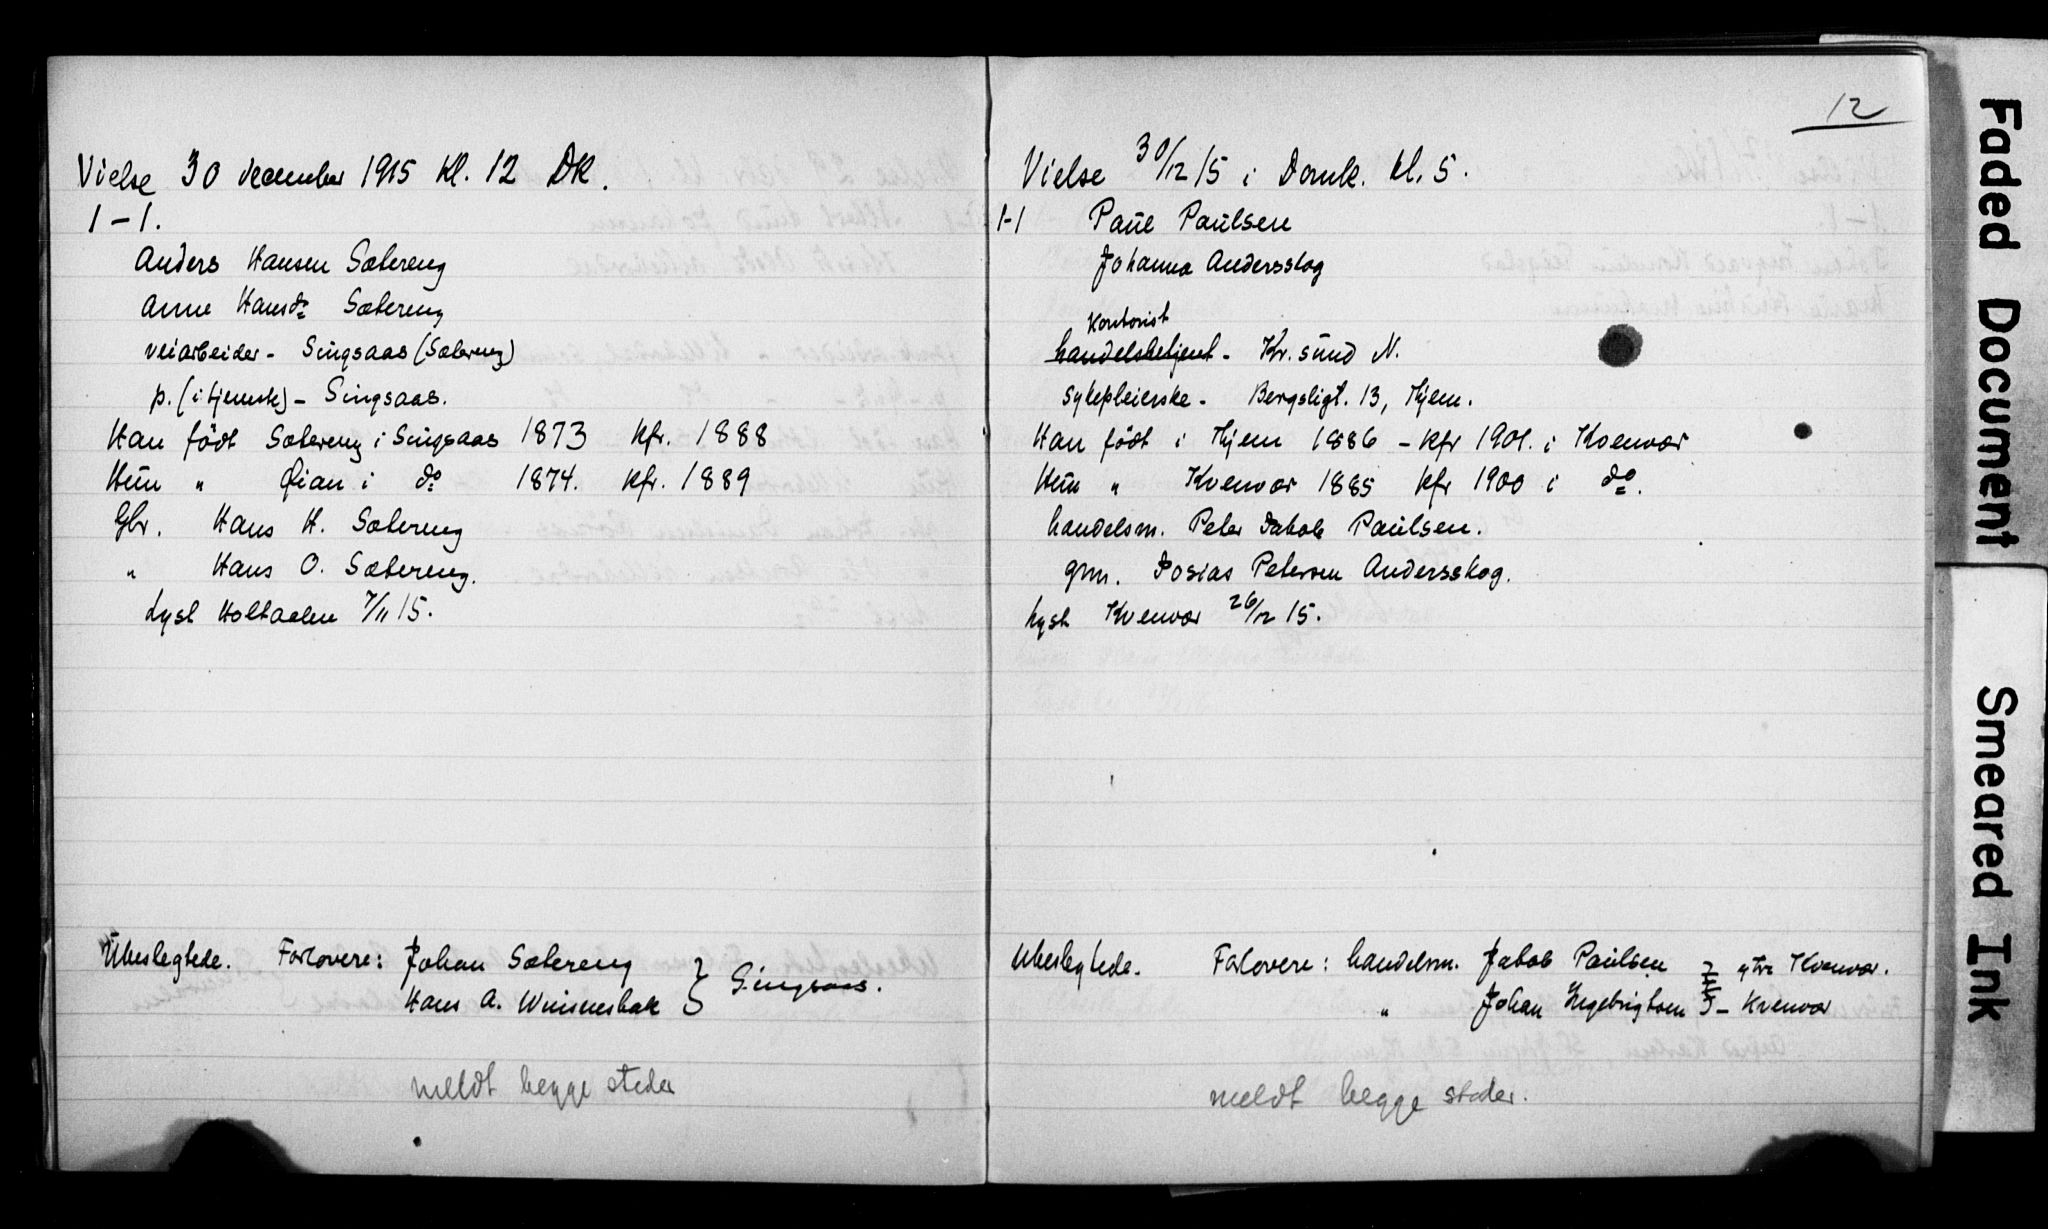 Vielse 30 december 1915 kl. 12 DK.
1-1.
Anders Hansen Sætereng
Anne Hansdr Sætereng
veiarbeider - Singsaas (Sætereng)
p. (i tjeneste) - Singsaas.
Han födt Sætereng i Singsaas 1873 kfr. 1888
Hun " Øian i do 1874. kfr. 1889
Gbr. Hans H. Sætereng
" Hans O. Sætereng.
Lyst Holtaalen 7/11 15.
Ubeslegtede. Forlovere: Johan Sætereng
Hans A. } Singsaas.
meldt begge steder
12
Vielse 30/12 15 i Domk. kl. 5.
1-1 Paul Paulsen
Johanna Andersskog
Kontorist
handelsbetjent - Kr.sund N.
sykepleierske - Bergsligt. 13, Thjem.
Han födt i Thjem 1886 - kfr 1901. i Kvenvær
Hun " Kvenvær 1885 kfr 1900 i do.
handelsm. Peter Jakob Paulsen.
gm. Josias Petersen Andersskog.
lyst Kvenvær 26/12 15.
Ubeslegtede. Forlovere: handelsm. Jakob Paulsen ytre Kvenvær.
" Johan Ingebrigtsen - Kvenvær
meldt begge steder.
Faded Document
Smeared Ink